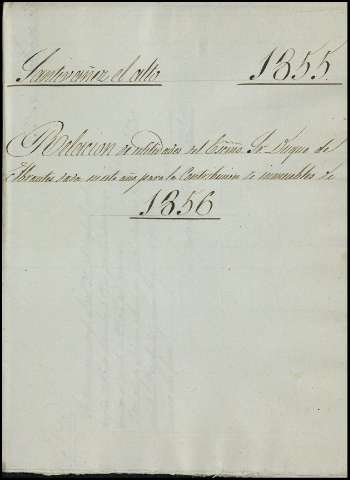 Santivañez el alto 1855
Relacion de utilidades del Excmo. Sr. Duque de
Abrantes dada en este año para la Contribucion de inmuebles de
1856